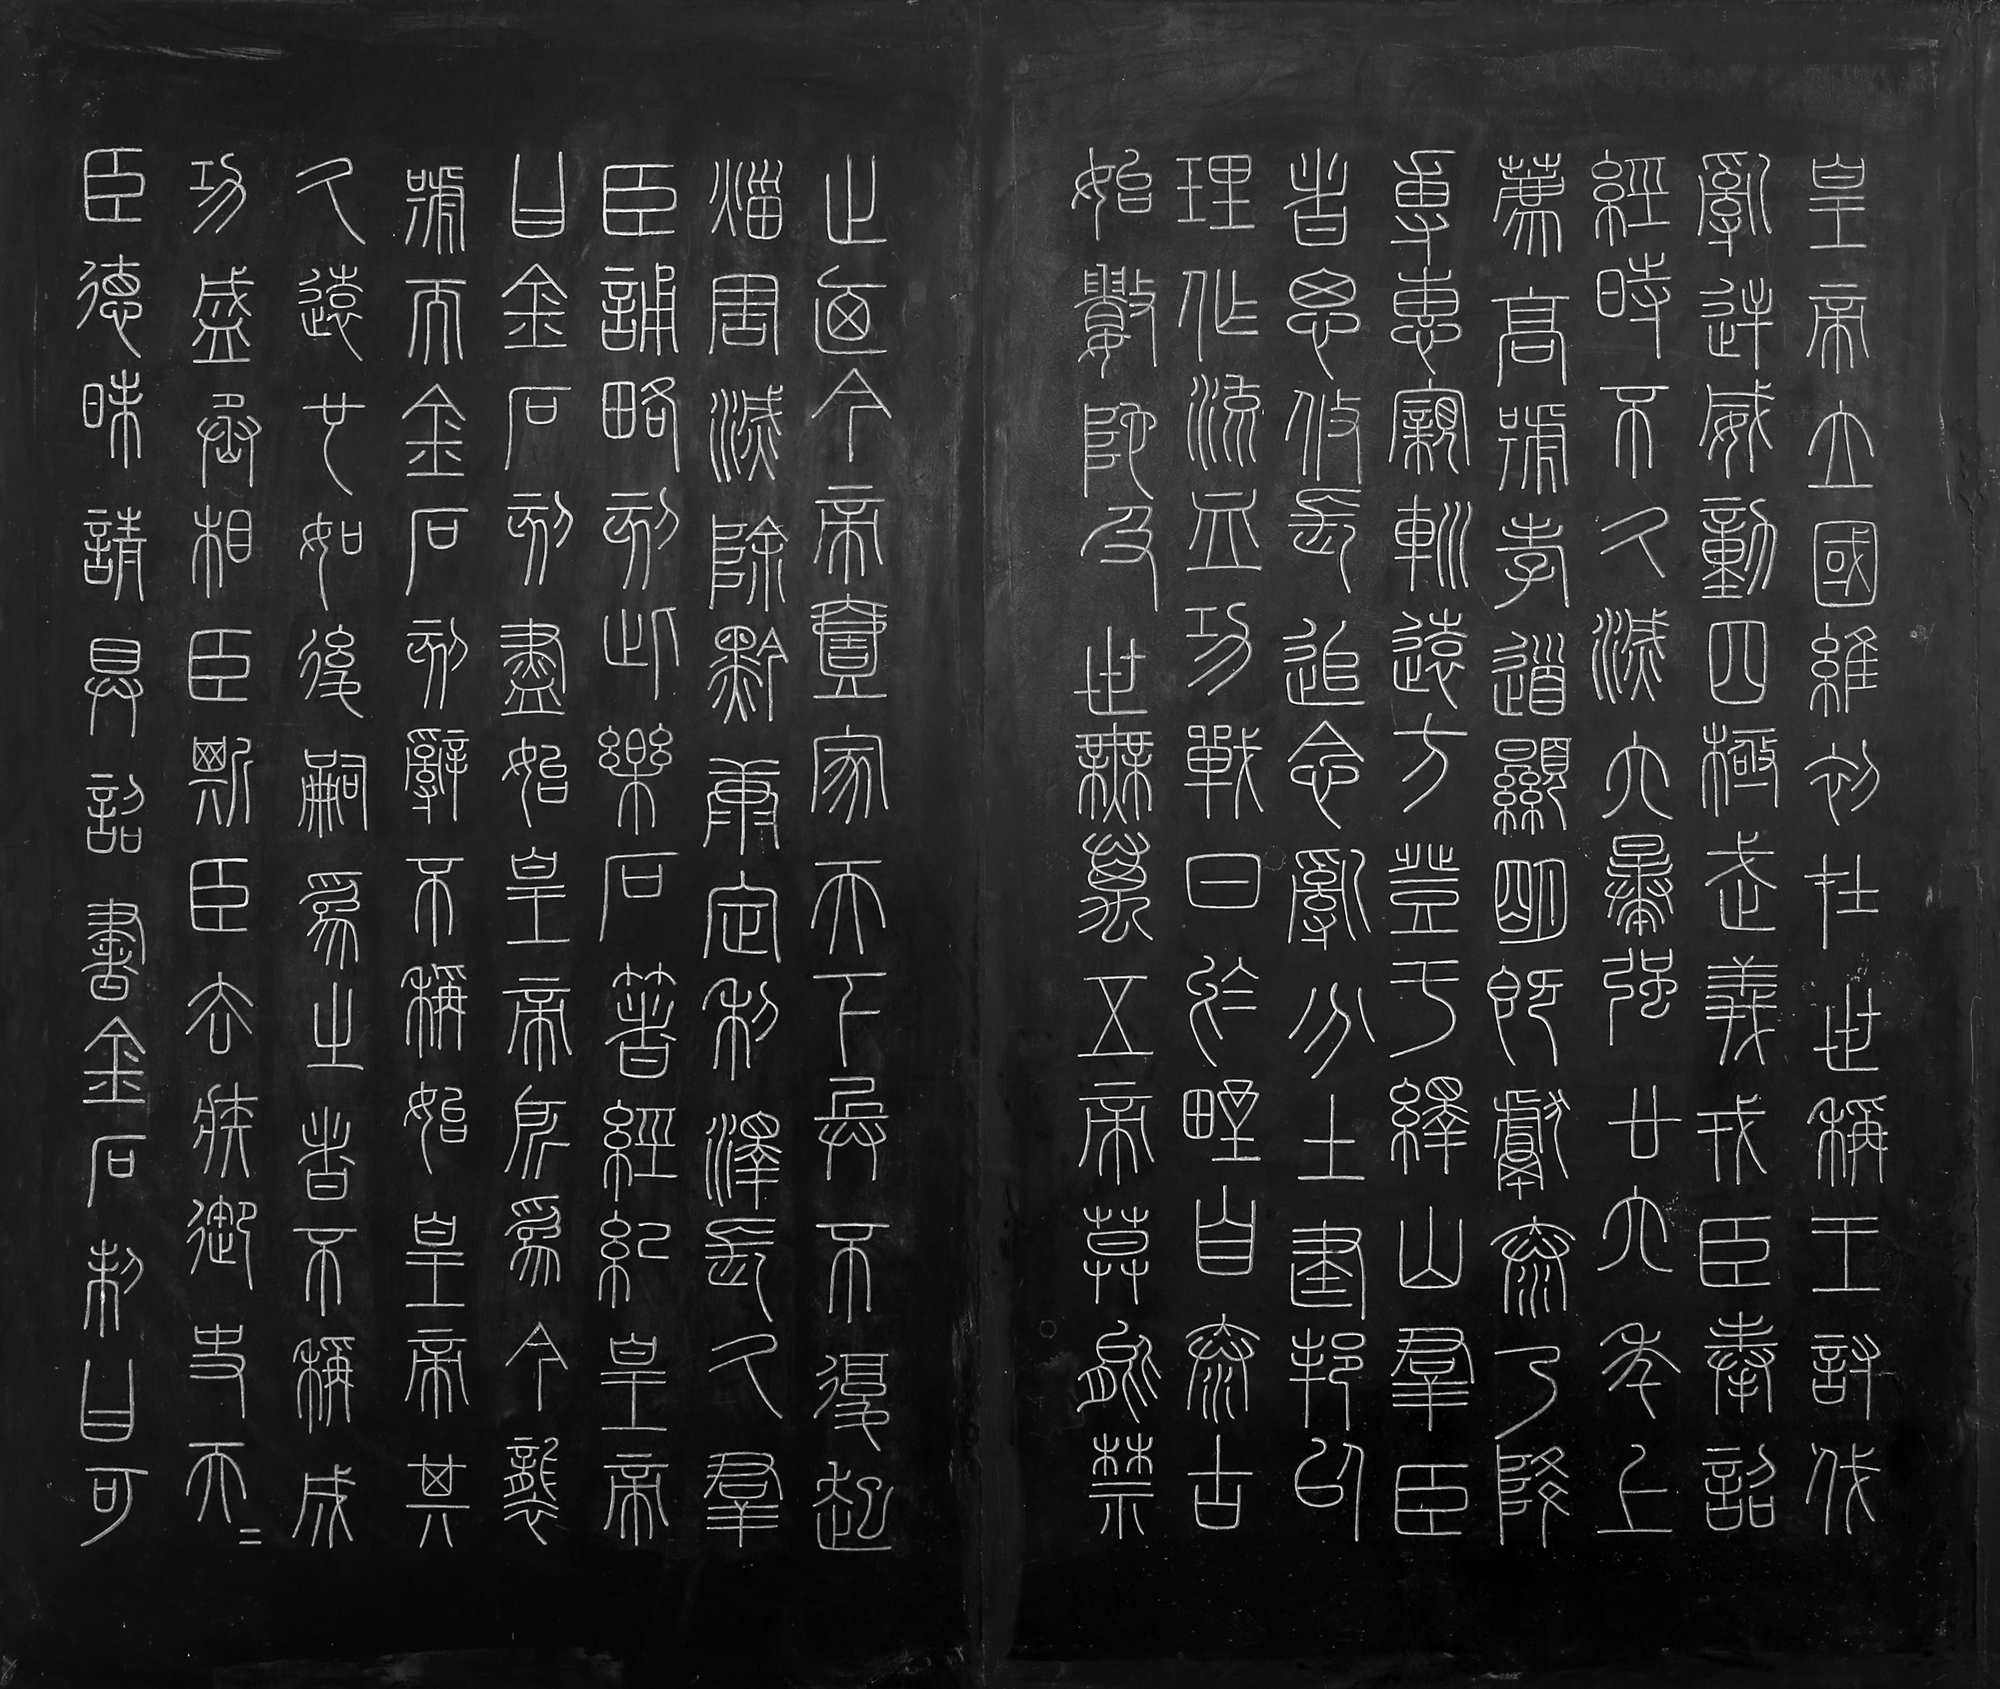 皇帝立國維初在世稱王討伐
亂逆威動四極武義戎臣奉詔
經時不久滅六暴強廿六年上
薦高號孝道顯明既獻泰乃降
專惠親巡遠方登于繹山群臣
者思攸長追念亂分土建邦以
理作流血功戰日於野自泰古
始數陀及世無萬五帝莫能禁
止迺今帝壹家天下兵不復起
災害滅除黔康定利澤長久群
臣誦略刻此樂石著經紀皇帝
曰金石刻盡始皇帝所爲今襲
號而金石刻辭不稱始皇帝其
久遠也如後嗣爲之者不稱成
功盛丞相臣斯臣去疾御史夫=
臣德昧請具詔書金石制曰可